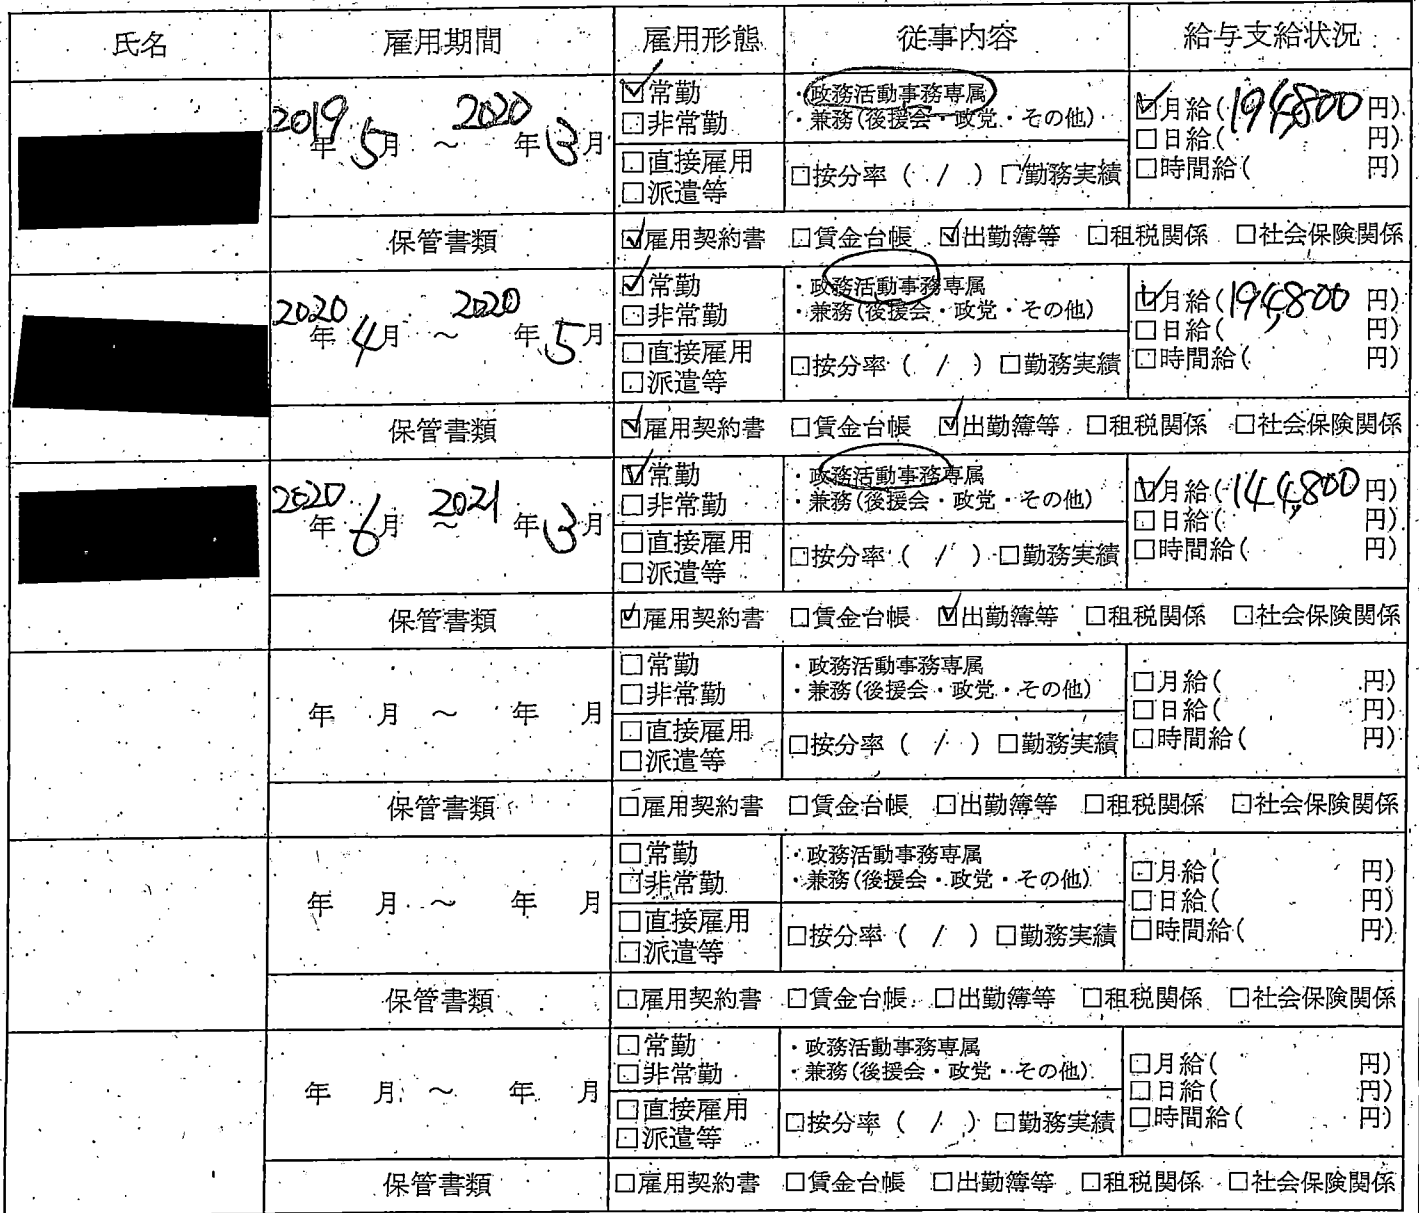 氏名 雇用期間 雇用形態 従事内容 給与支給状況
2019年5月 ～ 2020年3月
☑常勤
□非常勤
□直接雇用
□派遣等
・政務活動事務専属
・兼務(後援会・政党・その他)
□按分率 ( / ) □勤務実績
☑月給(194,800円)
□日給( 円)
□時間給( 円)
保管書類 ☑雇用契約書 □賃金台帳 ☑出勤簿等 □租税関係 □社会保険関係
2020年4月 ～ 2020年5月
☑常勤
□非常勤
□直接雇用
□派遣等
・政務活動事務専属
・兼務(後援会・政党・その他)
□按分率 ( / ) □勤務実績
☑月給(194,800円)
□日給( 円)
□時間給( 円)
保管書類 ☑雇用契約書 □賃金台帳 ☑出勤簿等 □租税関係 □社会保険関係
2020年6月 ～ 2021年3月
☑常勤
□非常勤
□直接雇用
□派遣等
・政務活動事務専属
・兼務(後援会・政党・その他)
□按分率 ( / ) □勤務実績
☑月給(144,800円)
□日給( 円)
□時間給( 円)
保管書類 ☑雇用契約書 □賃金台帳 ☑出勤簿等 □租税関係 □社会保険関係
年 月 ～ 年 月
□常勤
□非常勤
□直接雇用
□派遣等
・政務活動事務専属
・兼務(後援会・政党・その他)
□按分率 ( / ) □勤務実績
□月給( 円)
□日給( 円)
□時間給( 円)
保管書類 □雇用契約書 □賃金台帳 □出勤簿等 □租税関係 □社会保険関係
年 月 ～ 年 月
□常勤
□非常勤
□直接雇用
□派遣等
・政務活動事務専属
・兼務(後援会・政党・その他)
□按分率 ( / ) □勤務実績
□月給( 円)
□日給( 円)
□時間給( 円)
保管書類 □雇用契約書 □賃金台帳 □出勤簿等 □租税関係 □社会保険関係
年 月 ～ 年 月
□常勤
□非常勤
□直接雇用
□派遣等
・政務活動事務専属
・兼務(後援会・政党・その他)
□按分率 ( / ) □勤務実績
□月給( 円)
□日給( 円)
□時間給( 円)
保管書類 □雇用契約書 □賃金台帳 □出勤簿等 □租税関係 □社会保険関係